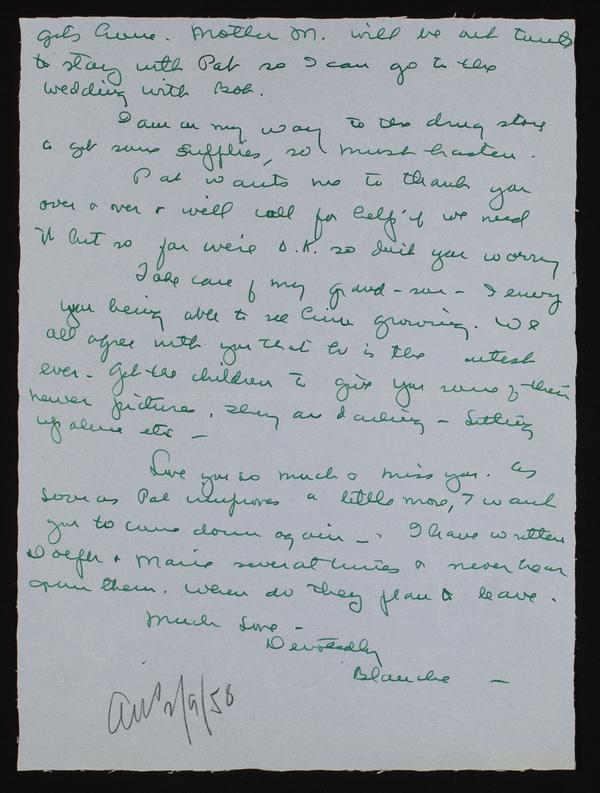 gets home. Mother M. will be out
to stay with Pat so I can go to the
wedding with Bob.
I am on my way to the drug store
to get some supplies, so must hasten.
Pat wants me to thank you
over & over & will call for help if we need
it but so far we're O.K. so don't you worry
Take care of my grand-son - I envy
you being able to see him growing. We
all agree with you that he is the cutest
ever. Get the children to give you some of their
newer pictures. They are darling - Sitting
up alone etc -
Love you so much & miss you. As
soon as Pat improves a little more, I want
you to come down again - I have written
& Marie several times & never hear
from them. When do they plan to leave.
Much Love -
Devotedly
Blanche -
2/9/58